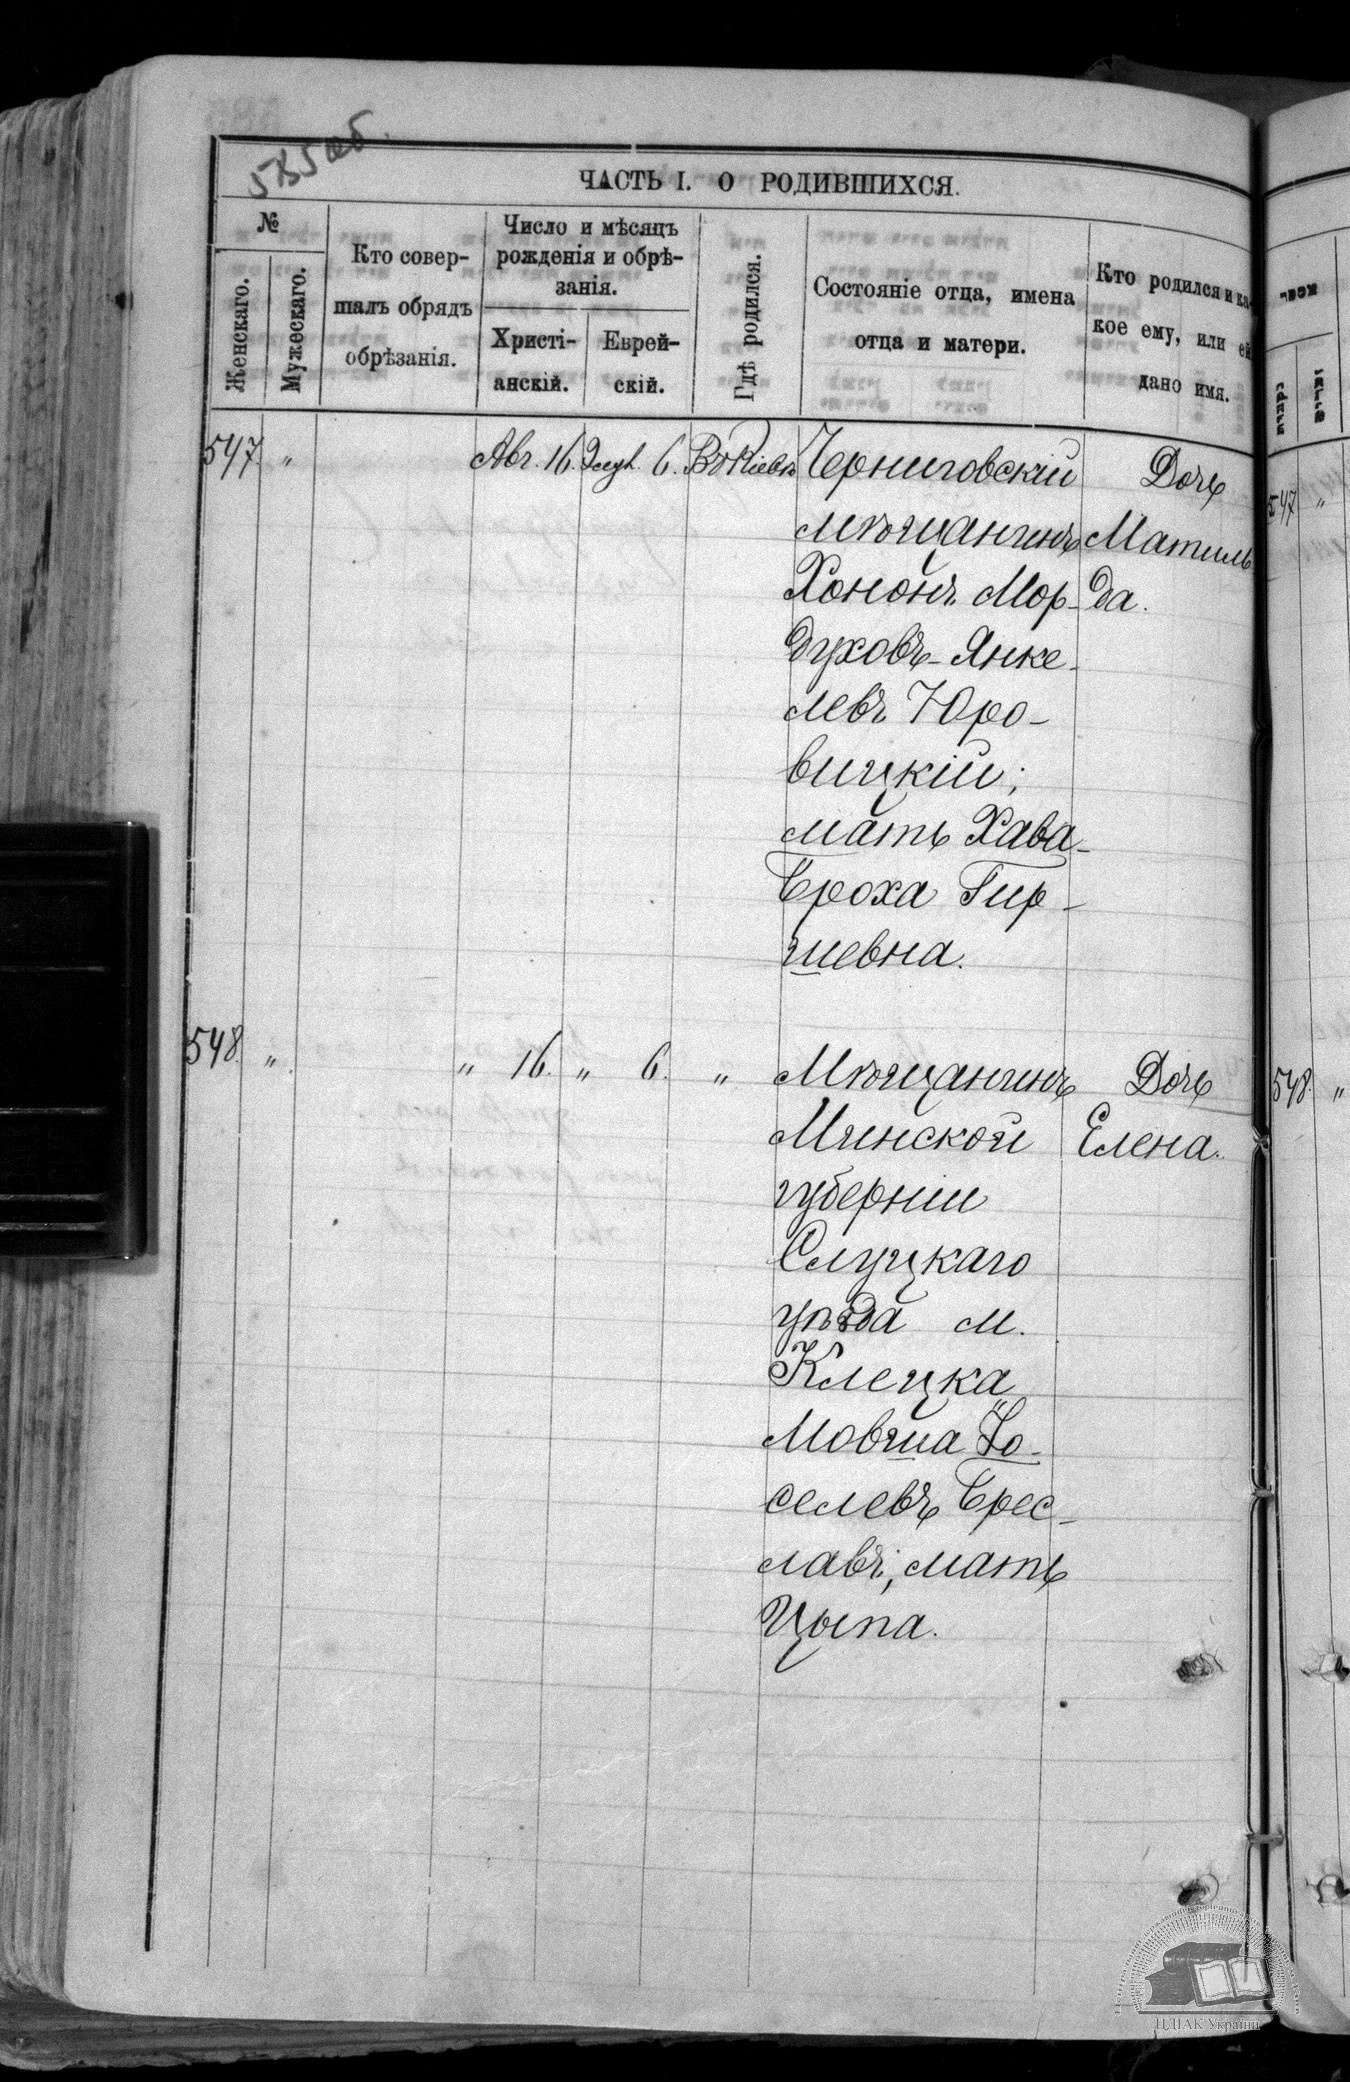 585 об.
ЧАСТЬ I. О РОДИВШИХСЯ.
№
Женскаго.
Мужескаго.
Кто совер-
шалъ обрядъ
обрѣзанія.
Число и мѣсяцъ
рожденія и обрѣ-
занія.
Христі-
анскій.
Еврей-
скій.
Гдѣ родился.
Состояніе отца, имена
отца и матери.
Кто родился и ка-
кое ему, или ей
дано имя.
547. " Авг. 16. 6. Въ Кіевѣ Черниговскій Дочь
мѣщанинъ Матиль
Хононъ Мор- да.
духовъ-Янке-
левъ Юро-
вицкій;
мать Хава-
Броха Гир-
шевна.
548. " " 16. " 6. " Мѣщанинъ Дочь
Минской Елена.
губерніи
Слуцкаго
уѣзда м.
Клецка
Мовша Іо-
селевъ Брес-
лавъ, мать
Цыпа.
547 "
548. "
ЦДІАК України